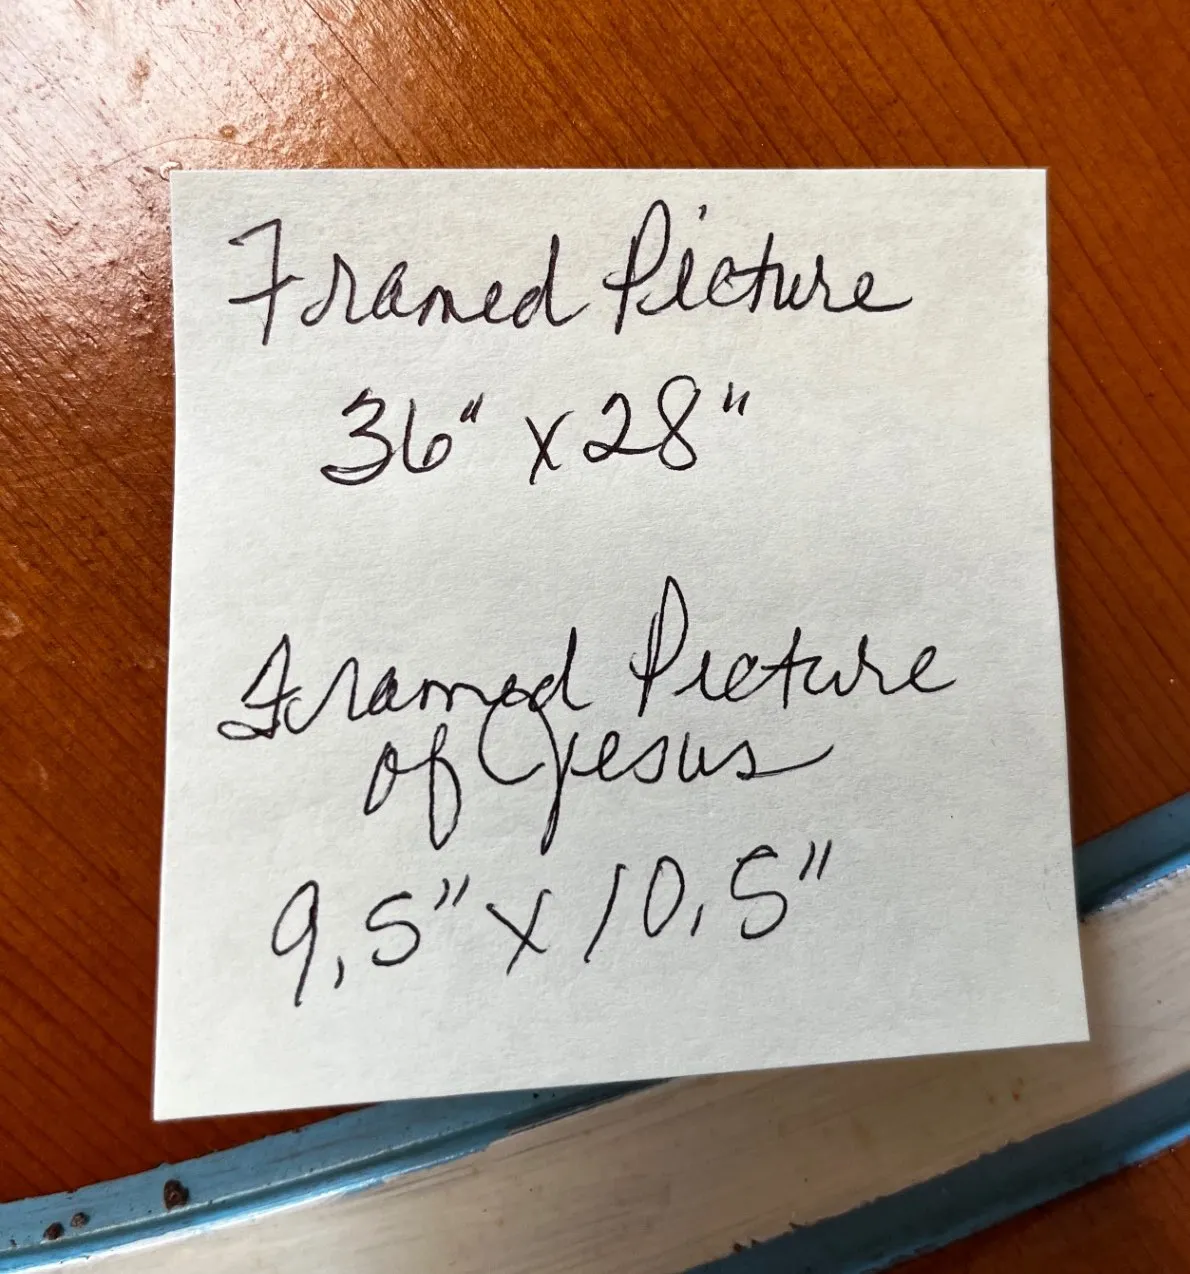 Framed Picture
36" x 28"
Framed Picture
of Jesus
9,5" x 10,5"